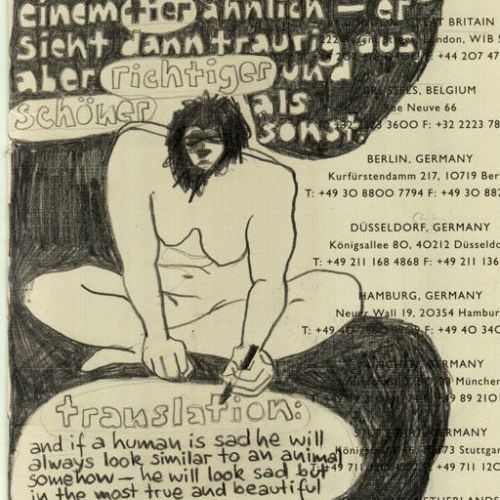 einem tier ähnlich – er
sieht dann traurig aus
aber richtiger und
schöner als
sonst.
GREAT BRITAIN
London, W1B
+44 207 47
BRUSSELS, BELGIUM
Rue Neuve 66
3600 F: +32 2223 78
BERLIN, GERMANY
Kurfürstendamm 217, 10719 Ber
T: +49 30 8800 7794 F: +49 30 882
DÜSSELDORF, GERMANY
Königsallee 80, 40212 Düsseldo
T: +49 211 168 4868 F: +49 211 136
HAMBURG, GERMANY
Neuer Wall 19, 20354 Hambur
T: +49 40 F: +49 40 340
GERMANY
München
+49 89 2101
GERMANY
Stuttgart
+49 711 12
NETHERLANDS
translation:
and if a human is sad he will
always look similar to an animal
somehow – he will look sad but
in the most true and beautiful